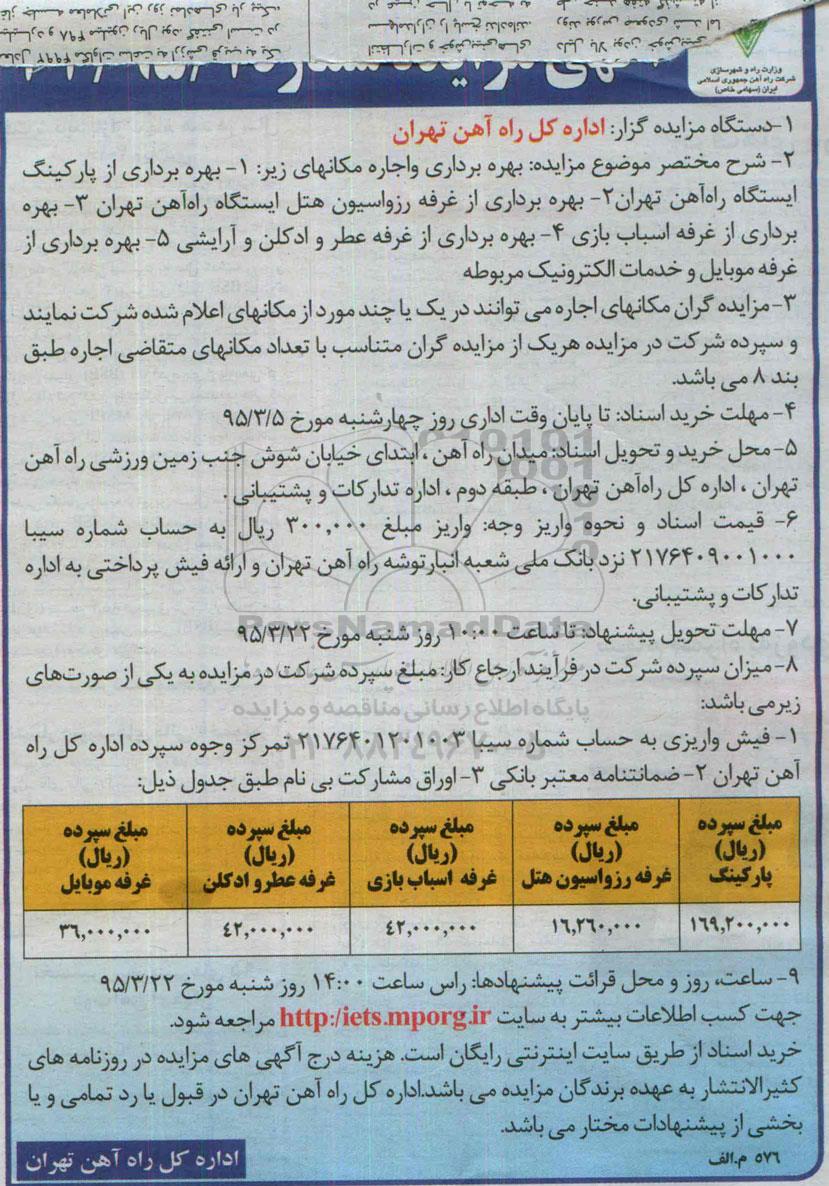 وزارت راه و شهرسازی
شرکت راه آهن جمهوری اسلامی
ایران (سهامی خاص)
۱-دستگاه مزایده گزار: اداره کل راه آهن تهران
۲- شرح مختصر موضوع مزایده: بهره برداری واجاره مکانهای زیر: ۱- بهره برداری از پارکینگ
ایستگاه راه‌آهن تهران۲- بهره برداری از غرفه رزواسیون هتل ایستگاه راه‌آهن تهران ۳- بهره
برداری از غرفه اسباب بازی ۴- بهره برداری از غرفه عطر و ادکلن و آرایشی ۵- بهره برداری از
غرفه موبایل و خدمات الکترونیک مربوطه
۳-مزایده گران مکانهای اجاره می توانند در یک یا چند مورد از مکانهای اعلام شده شرکت نمایند
و سپرده شرکت در مزایده هریک از مزایده گران متناسب با تعداد مکانهای متقاضی اجاره طبق
بند ۸ می باشد.
۴- مهلت خرید اسناد: تا پایان وقت اداری روز چهارشنبه مورخ ۹۵/۳/۵
۵- محل خرید و تحویل اسناد: میدان راه آهن ، ابتدای خیابان شوش جنب زمین ورزشی راه آهن
تهران ، اداره کل راه‌آهن تهران ، طبقه دوم ، اداره تدارکات و پشتیبانی .
۶- قیمت اسناد و نحوه واریز وجه: واریز مبلغ ۳۰۰,۰۰۰ ریال به حساب شماره سیبا
۲۱۷۶۴۰۹۰۰۱۰۰۰ نزد بانک ملی شعبه انبارتوشه راه آهن تهران و ارائه فیش پرداختی به اداره
تدارکات و پشتیبانی.
ParsNamadData
۷- مهلت تحویل پیشنهاد: تا ساعت ۱۰:۰۰ روز شنبه مورخ ۹۵/۳/۲۲
۸- میزان سپرده شرکت در فرآیند ارجاع کار: مبلغ سپرده شرکت در مزایده به یکی از صورت‌های
زیر می باشد:
پایگاه اطلاع رسانی مناقصه و مزایده
۱- فیش واریزی به حساب شماره سیبا ۲۱۷۶۴۰۱۲۰۱۰۰۳ تمرکز وجوه سپرده اداره کل راه
آهن تهران ۲- ضمانتنامه معتبر بانکی ۳- اوراق مشارکت بی نام طبق جدول ذیل:
مبلغ سپرده (ریال) پارکینگ
مبلغ سپرده (ریال) غرفه رزواسیون هتل
مبلغ سپرده (ریال) غرفه اسباب بازی
مبلغ سپرده (ریال) غرفه عطر و ادکلن
مبلغ سپرده (ریال) غرفه موبایل
۱۶۹,۲۰۰,۰۰۰ ۱۶,۲۶۰,۰۰۰ ۴۲,۰۰۰,۰۰۰ ۴۲,۰۰۰,۰۰۰ ۳۶,۰۰۰,۰۰۰
۹- ساعت، روز و محل قرائت پیشنهادها: راس ساعت ۱۴:۰۰ روز شنبه مورخ ۹۵/۳/۲۲
جهت کسب اطلاعات بیشتر به سایت http:/iets.mporg.ir مراجعه شود.
خرید اسناد از طریق سایت اینترنتی رایگان است. هزینه درج آگهی های مزایده در روزنامه های
کثیرالانتشار به عهده برندگان مزایده می باشد.اداره کل راه آهن تهران در قبول یا رد تمامی و یا
بخشی از پیشنهادات مختار می باشد.
۵۷۶ م.الف
اداره کل راه آهن تهران